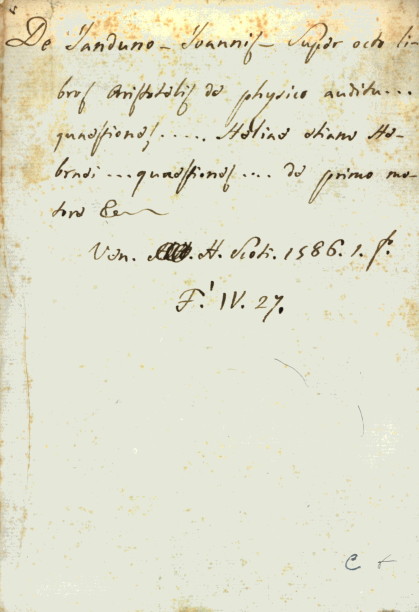 De Janduno – Joannis – Super octo li-
bros Aristotelis de physico auditu...
quaestiones..... Heliae etiam He-
braei...quaestiones.... de primo mo-
tore &c
Ven. H. Scoti. 1586. 1. f.º
F.' IV. 27.
C +